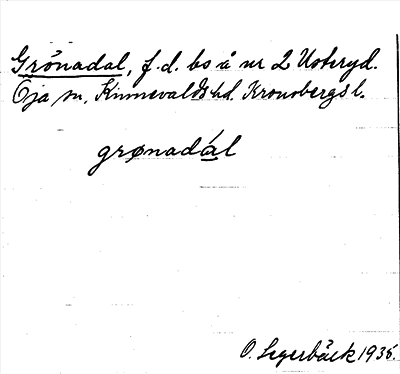 Grönadal, f.d. bs å nr 2 Usteryd.
Öja sn, Kinnevalds hd. Kronobergs l.
grønadál
O. Segerbäck 1936.